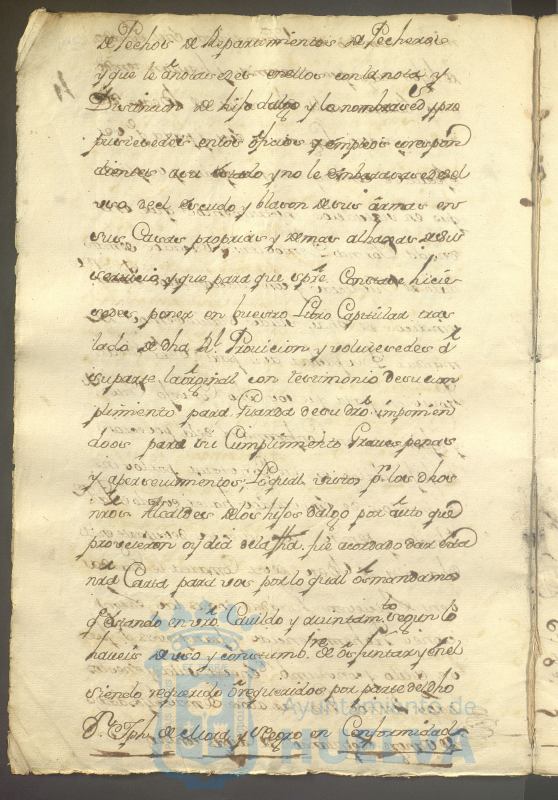 de Pechos de Repartimientos de Pecheros
y que le anotasedes en ellos con la nota, y
Distincion de hijo dalgo y lo nombrasedes, y pro
pusiesedes en los oficios y empleos correspon
dientes a su estado y no le embarasasedes el
uso de el escudo y blason de sus armas en
sus Casas propias y demas alhajas de su
servicio, y que para que spre. Constase hicie
sedes, poner en buestro Libro Capitular tras
lado de dha Rl. Provicion y volviesedes a
su parte la original con testimonio de su cum
plimiento para Guarda de su dro. imponien
doos para su Cumplimiento Graves penas
y apersevimientos; Lo qual visto pr. los dhos
nros Alcaldes de los hijos dalgo por auto que
proveieron oy dia de la fha. fue acordado dar esta
nra Carta para vos por lo qual os mandamos
q estando en vro. Cavildo y aiuntamto. segun lo
haueis de uso y costumbre de os juntar y en el
siendo requerido o requeridos por parte del dho
Dn. Jph. de Mora y Negro en Conformidad
Ayuntamiento de
HUELVA